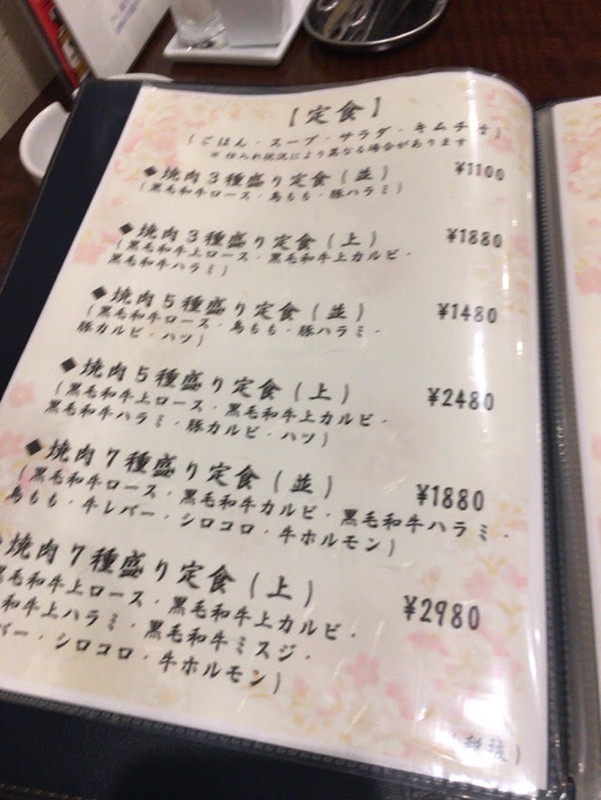 【定食】
(ごはん・スープ・サラダ・キムチ付)
※仕入れ状況により異なる場合があります
◆焼肉3種盛り定食(並) ¥1100
(黒毛和牛ロース・鳥もも・豚ハラミ)
◆焼肉3種盛り定食(上) ¥1880
(黒毛和牛上ロース・黒毛和牛上カルビ・
黒毛和牛ハラミ)
◆焼肉5種盛り定食(並) ¥1480
(黒毛和牛ロース・鳥もも・豚ハラミ・
豚カルビ・ハツ)
◆焼肉5種盛り定食(上) ¥2480
(黒毛和牛上ロース・黒毛和牛上カルビ・
黒毛和牛ハラミ・豚カルビ・ハツ)
◆焼肉7種盛り定食(並) ¥1880
(黒毛和牛ロース・黒毛和牛カルビ・黒毛和牛ハラミ・
鳥もも・牛レバー・シロコロ・牛ホルモン)
焼肉7種盛り定食(上) ¥2980
毛和牛上ロース・黒毛和牛上カルビ・
和牛上ハラミ・黒毛和牛ミスジ・
バー・シロコロ・牛ホルモン)